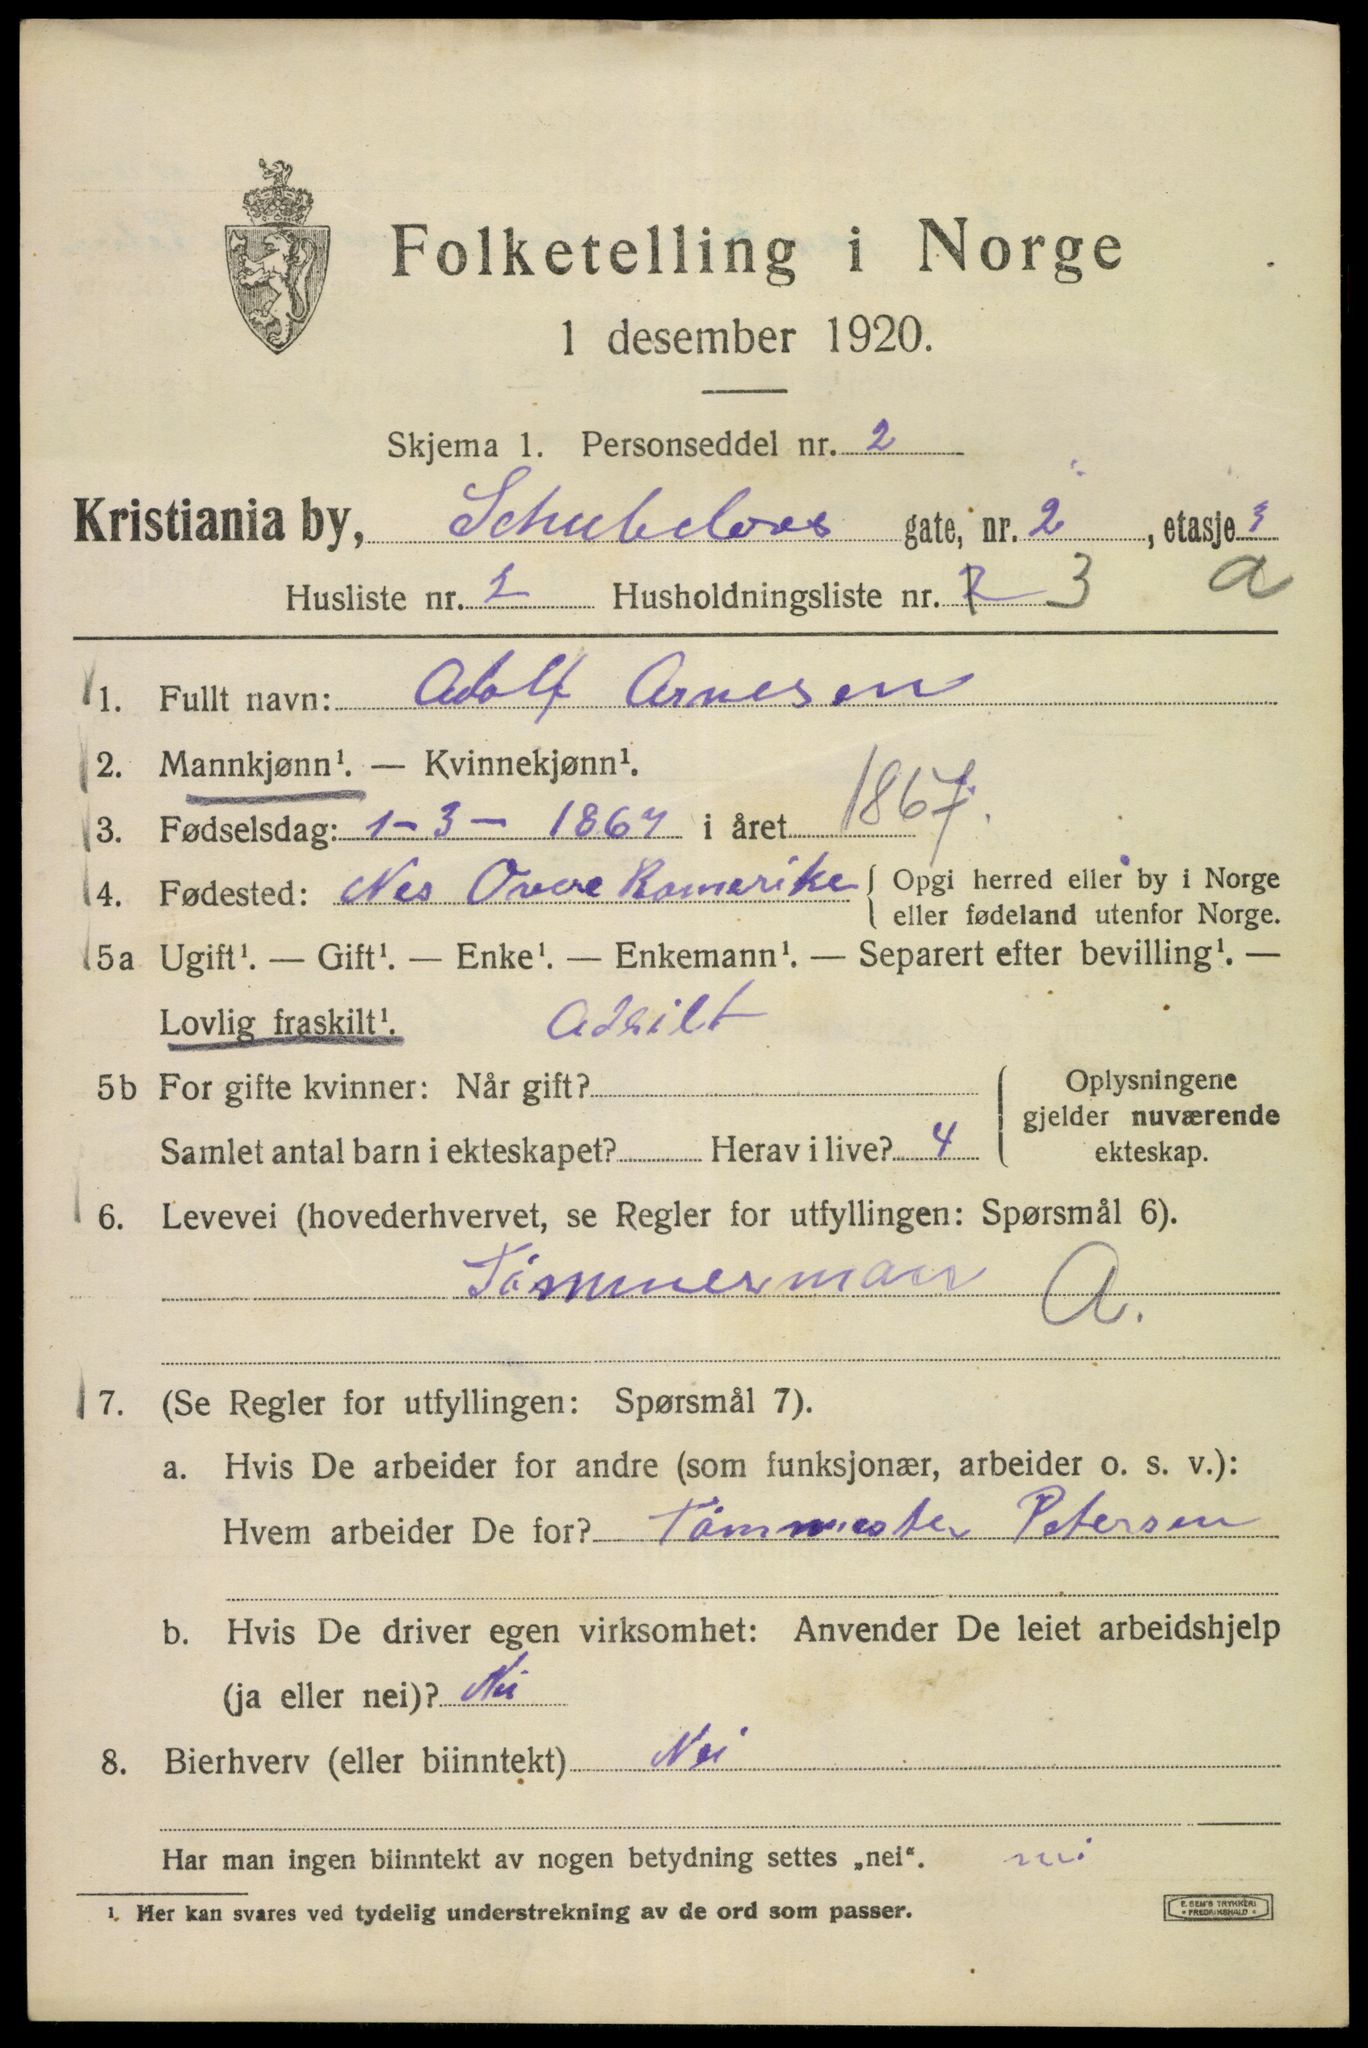 Folketelling i Norge
1 desember 1920.
Skjema 1. Personseddel nr. 2
Kristiania by, Schubeloes gate, nr. 2, etasje 3
Husliste nr. 2 Husholdningsliste nr. 2 3 a
1. Fullt navn: Adolf Arnesen
2. Mannkjønn¹. — Kvinnekjønn¹.
3. Fødselsdag: 1-3- 1867 i året 1867.
4. Fødested: Nes Övre Romerike { Opgi herred eller by i Norge
eller fødeland utenfor Norge.
5a Ugift¹. — Gift¹. — Enke¹. — Enkemann¹. — Separert efter bevilling¹. —
Lovlig fraskilt¹. Adsilt
5b For gifte kvinner: Når gift? { Oplysningene
gjelder nuværende
Samlet antal barn i ekteskapet? Herav i live? 4 ekteskap.
6. Levevei (hovederhvervet, se Regler for utfyllingen: Spørsmål 6).
Tömmerman A.
7. (Se Regler for utfyllingen: Spørsmål 7).
a. Hvis De arbeider for andre (som funksjonær, arbeider o. s. v.):
Hvem arbeider De for? Petersen
b. Hvis De driver egen virksomhet: Anvender De leiet arbeidshjelp
(ja eller nei)? Nei
8. Bierhverv (eller biinntekt) Nei
Har man ingen biinntekt av nogen betydning settes „nei“. nei
¹. Her kan svares ved tydelig understrekning av de ord som passer.
E. SEM'S TRYKKERI
FREDRIKSHALD